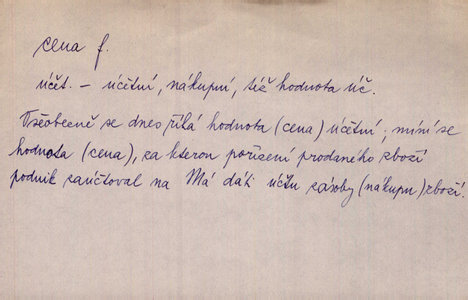 cena f.
účet. – účetní, nákupní, též hodnota úč.
Všeobecně se dnes říká hodnota (cena) účetní; míní se
hodnota (cena), za kterou pořízení prodaného zboží
podnik zaúčtoval na Má dáti účtu zásoby (nákupu) zboží.